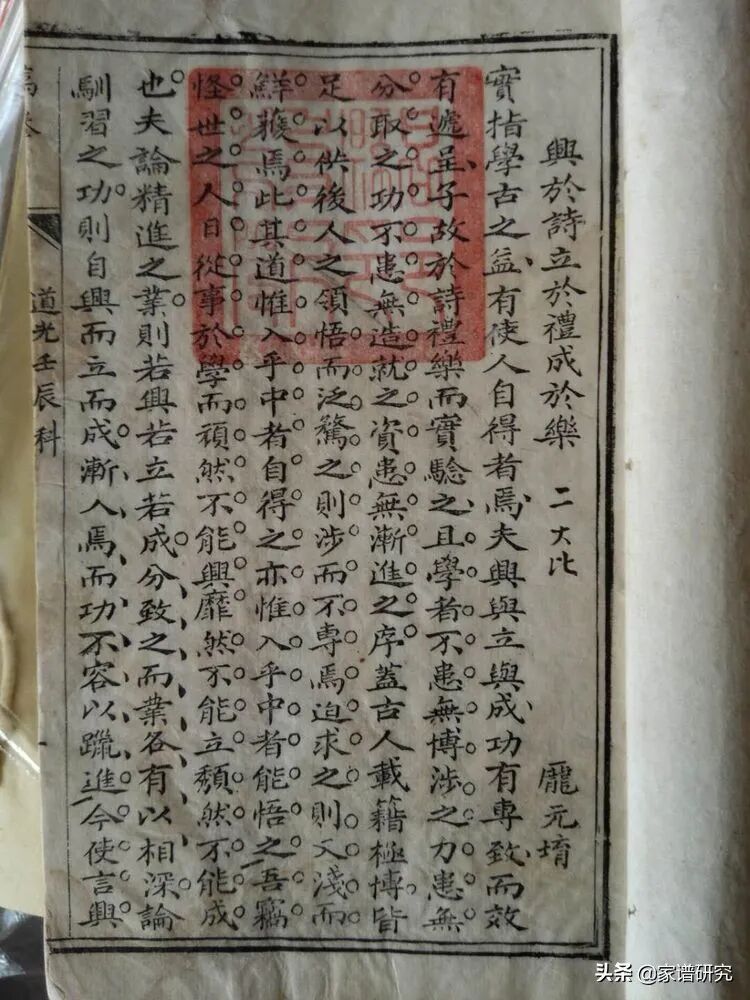 興於詩立於禮成於樂 二大比 龎元堉
實指學古之益有使人自得者焉夫興與立與成功有專致而效
有遞呈子故於詩禮樂而實驗之且學者不患無博涉之力患無
分取之功不患無造就之資患無漸進之序蓋古人載籍極博皆
足以供後人之領悟而泛騖之則涉而不專焉迫求之則又淺而
鮮獲焉此其道惟入乎中者自得之亦惟入乎中者能悟之吾竊
怪世之人日從事於學而頑然不能興靡然不能立頹然不能成
也夫論精進之業則若興若立若成分致之而業各有以相深論
馴習之功則自興而立而成漸入焉而功不容以躐進今使言興
道光壬辰科
头条 @家谱研究